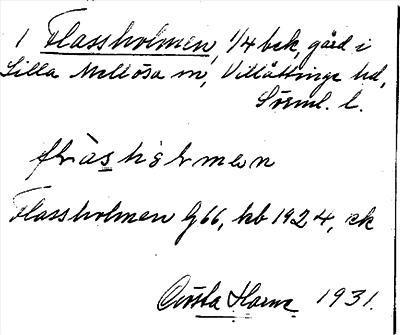 1 Flassholmen, 1/4 bek, gård i
Lilla Mellösa sn, Villåttinge hd,
Söml. l.
flàshòlmen
Flassholmen G66, kb 1924, ek
Gösta Harne 1931.